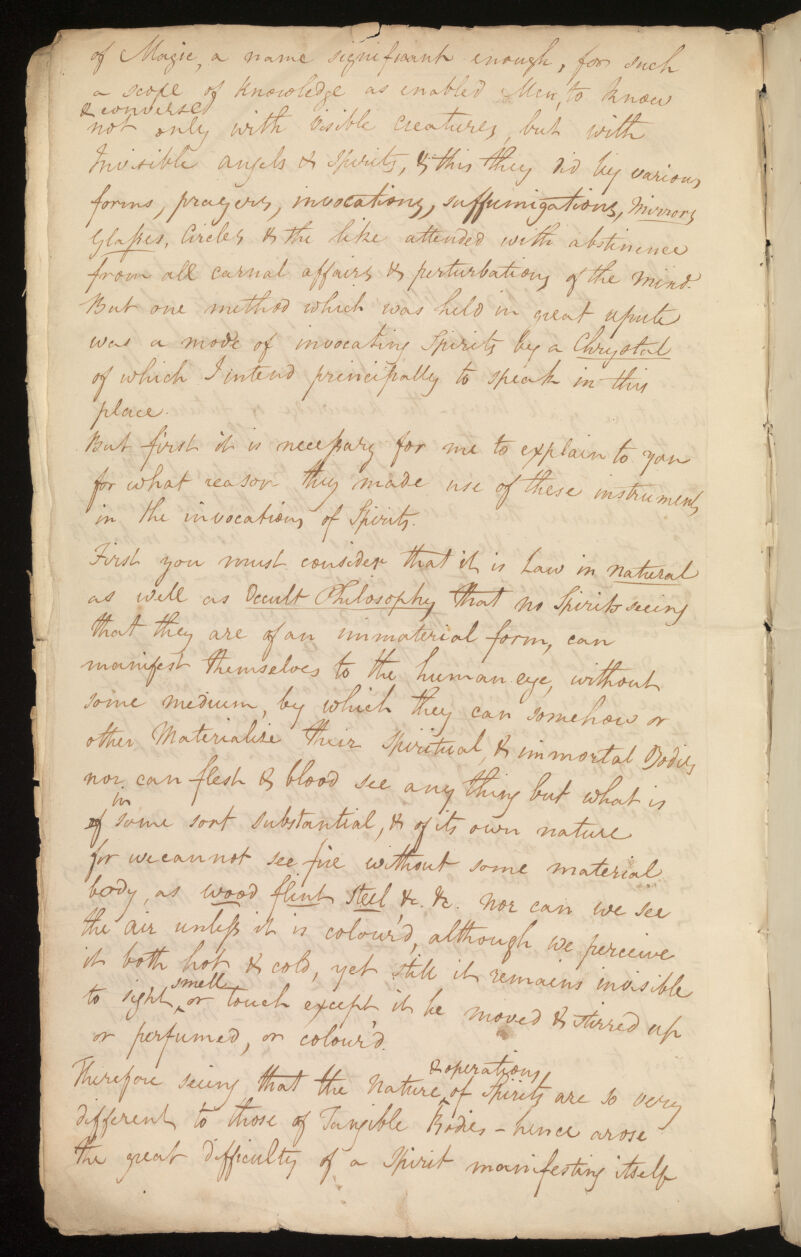 of Magic, a name significant enough, for such
a scope of knowledge as enabled Men, to know
& conversed
not only with visible creatures, but with
Invisible angels & Spirits, & this they did by various
forms, prayers, invocations, suffumigations, Mirrors
Glasses, Circles & the like attended with abstinence
from all carnal affairs & perturbations of the mind.
But one method which was held in great repute
was a mode of invocating Spirits by a Chrystal
of which I intend principally to speak in this
place.
But first it is necessary for me to explain to you
for what reason they made use of these instruments
in the invocations of Spirits.
First you must consider that it is Law in natural
as well as Occult Philosophy that no Spirits seeing
that they are of an immaterial form, can
manifest themselves to the human eye, without
some medium, by which they can somehow or
other Materialise their Spiritual, & immortal Bodies
nor can flesh & blood see any thing but what is
in
of some sort substantial, & of its own nature
for we cannot see fire without some material
body, as wood flint steel &c. &c. nor can we see
the air unless it is colour'd, although we perceive
it both hot & cold, yet still it remains invisible
smell
to sight, or touch except it be moved & stirred up
or perfumed, or colour'd.
& operations
Therefore seeing that the Nature of Spirits are so very
different to those of Tangible Bodies – hence arose
the great difficulty of a Spirit manifesting itself